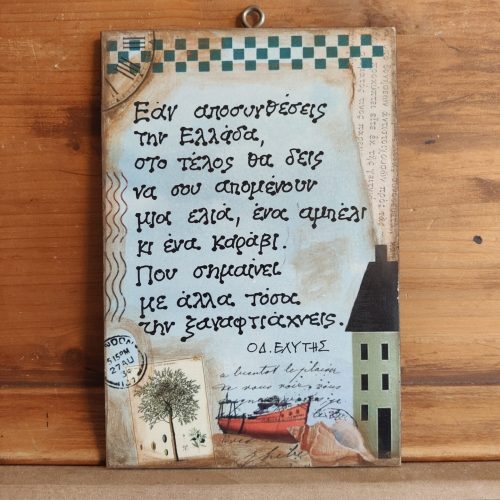 Εαν αποσυνθέσεις
την Ελλάδα,
στο τέλος θα δεις
να σου απομένουν
μια ελιά, ένα αμπέλι
κι ένα καράβι.
Που σημαίνει
με άλλα τόσα
την ξαναφτιάχνεις.
ΟΔ. ΕΛΥΤΗΣ
NDON
5 15PM
27AU